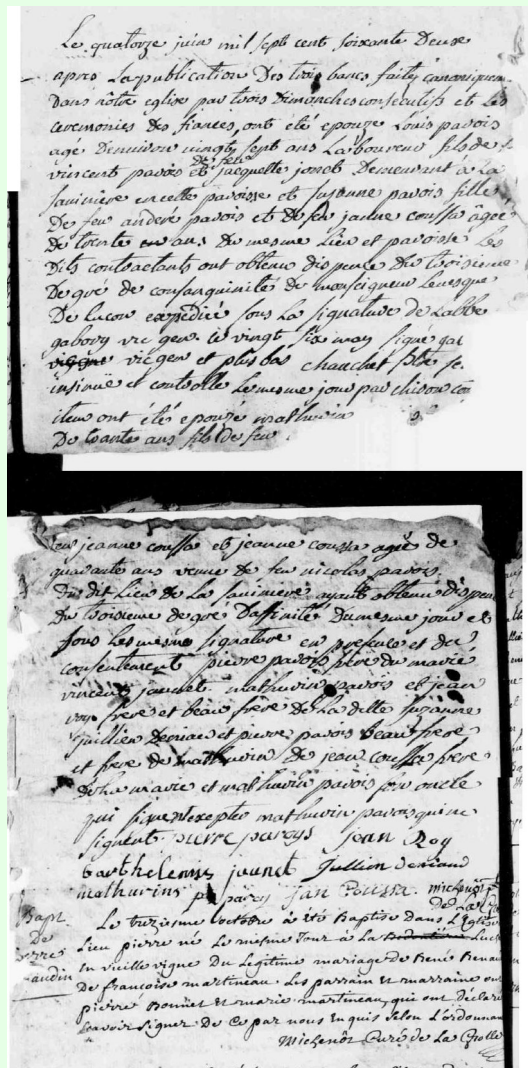 Le quatorze juin mil sept cent soixante Deuxe
apres La publication Des trois bancs faits canoniquem
Dans nôtre eglise par trois Dimanches consecutifs et Les
ceremonies des fiances, ont été epouze Louis pavois
agé Denviron vingt sept ans Laboureur fils de
vincent pavois et de feue jacquette jonet Demeurant à La
saniniere en cette paroisse et susanne pavois fille
De feu andre pavois et de feu janne coussa âgeé
de trente ans du mesme Lieu et paroisse Les
Dits contractants ont obtenu dispence du troisieme
De gré de consanguinité de monseigneur Levesque
De Lucon expedieé sous La signature de Labbe
gabory vic gen. le vingt six may signé gab
vic gen et plus bas chauchet
insinué et controllé Le mesme jour par chison con
item ont été epouzé mathurin
De trante ans fils de feu
feu jeanne coussa et jeanne coussa ageé de
quarante ans veuve de feu nicolas pavois
Du dit Lieu de La saniniere ayant obtenu dispen
Du troisieme de gré Daffinité Du mesme jour et
sous Les mesme signature en presence et du
consentement pierre pavois frere du marié
vincent jaunet mathurin pavois et jean
roy frere et beau frere de La dite suzanne
juillien Deniau et pierre pavois beau frere
et frere de mathurin De jean coussa frere
de La marié et mathurin pavois son oncle
qui signent excepter mathurin pavois qui ne
signent pierre paroys jean Roy
barthelemy jaunet Jullien deniaud
mathurins paroy jan Coussa michenôt
de La Gro
Bapt
De
pierre
naudin
Le treziesme octobre à eté Baptisé dans L'Eglise
Lieu pierre né Le mesme Jour à La
en vieille vigne Du Legitime mariage de René Renau
De francoise martineau Les parrain et marraine ont
pierre Bonnet et marie martineau, qui ont Declaré
scavoir signer De Ce par nous Enquis selon L'ordonnan
Michenôt Curé de La Grolle